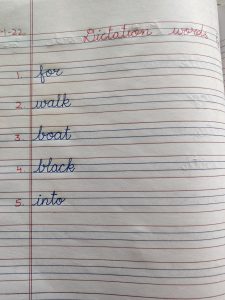 -1-22 Dictation words
1. for
2. walk
3. boat
4. black
5. into